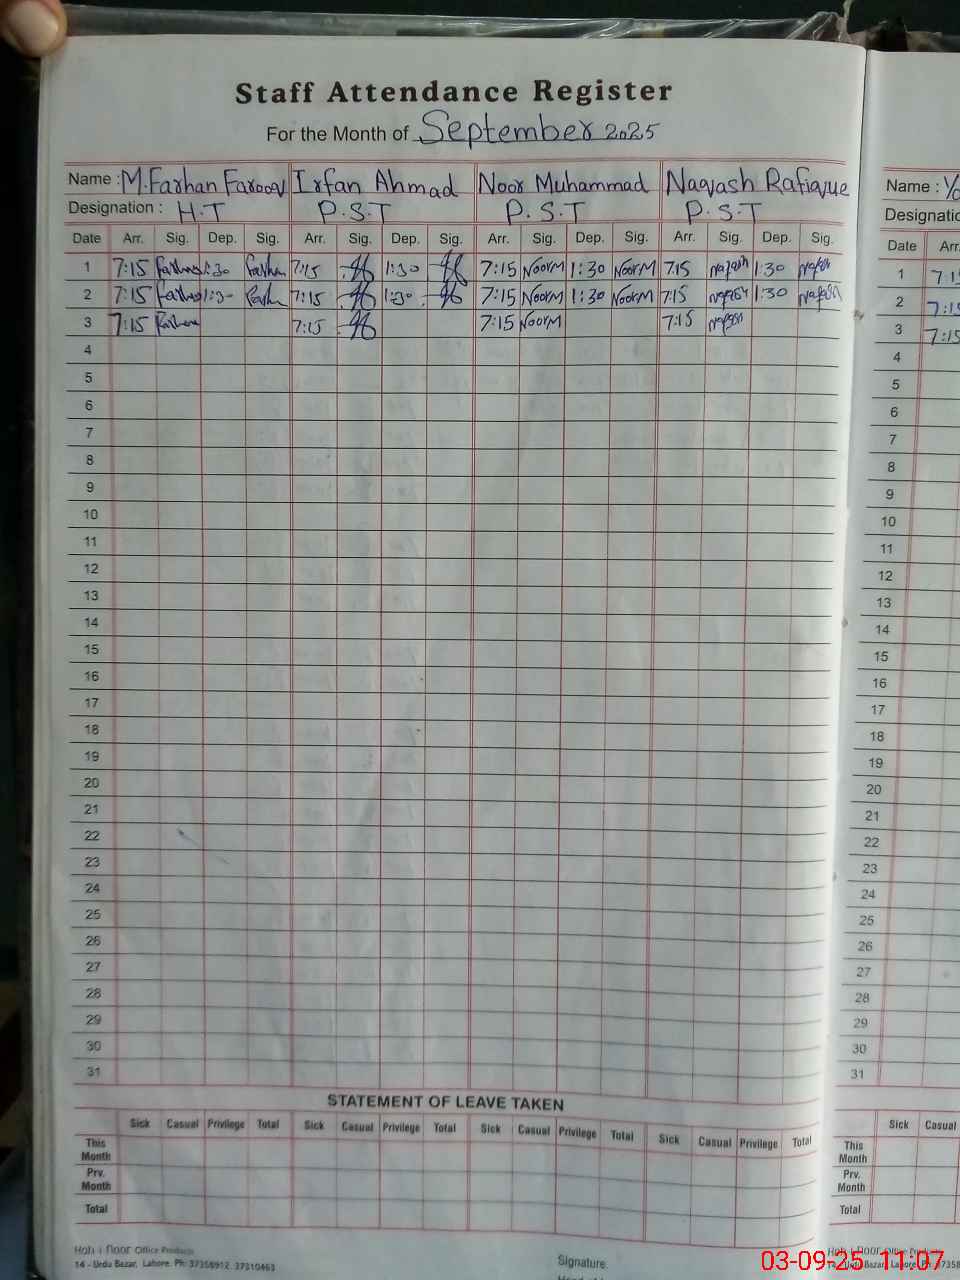 Staff Attendance Register
For the Month of September 2025
Name : M.Farhan Farooq Irfan Ahmad Noor Muhammad Naqash Rafique Name :
Designation : H.T P.S.T P.S.T P.S.T
Date Arr. Sig. Dep. Sig. Arr. Sig. Dep. Sig. Arr. Sig. Dep. Sig. Arr. Sig. Dep. Sig. Date Arr.
1 7:15 Farhan 1:30 Farhan 7:15 1:30 7:15 NoorM 1:30 NoorM 7:15 1:30 1 7:15
2 7:15 Farhan 1:30 Farhan 7:15 1:30 7:15 NoorM 1:30 NoorM 7:15 1:30 2 7:15
3 7:15 Farhan 7:15 7:15 NoorM 7:15 3 7:15
4 4
5 5
6 6
7 7
8 8
9 9
10 10
11 11
12 12
13 13
14 14
15 15
16 16
17 17
18 18
19 19
20 20
21 21
22 22
23 23
24 24
25 25
26 26
27 27
28 28
29 29
30 30
31 31
STATEMENT OF LEAVE TAKEN
Sick Casual Privilege Total Sick Casual Privilege Total Sick Casual Privilege Total Sick Casual Privilege Total Sick Casual
This Month This Month
Prv. Month Prv. Month
Total Total
Office Products
14 - Urdu Bazar, Lahore. Ph: 37358912, 37310463
Signature.
03-09-25 11:07